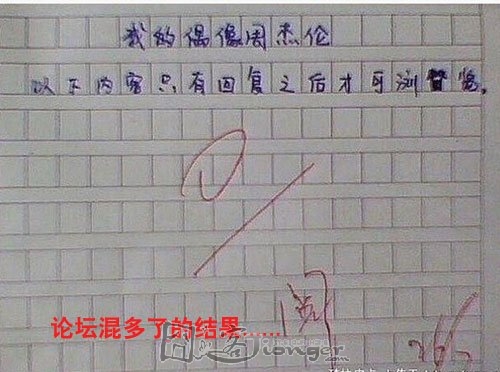 我的偶像周杰伦
以下内容只有回复之后才可浏览。
阅
论坛混多了的结果......